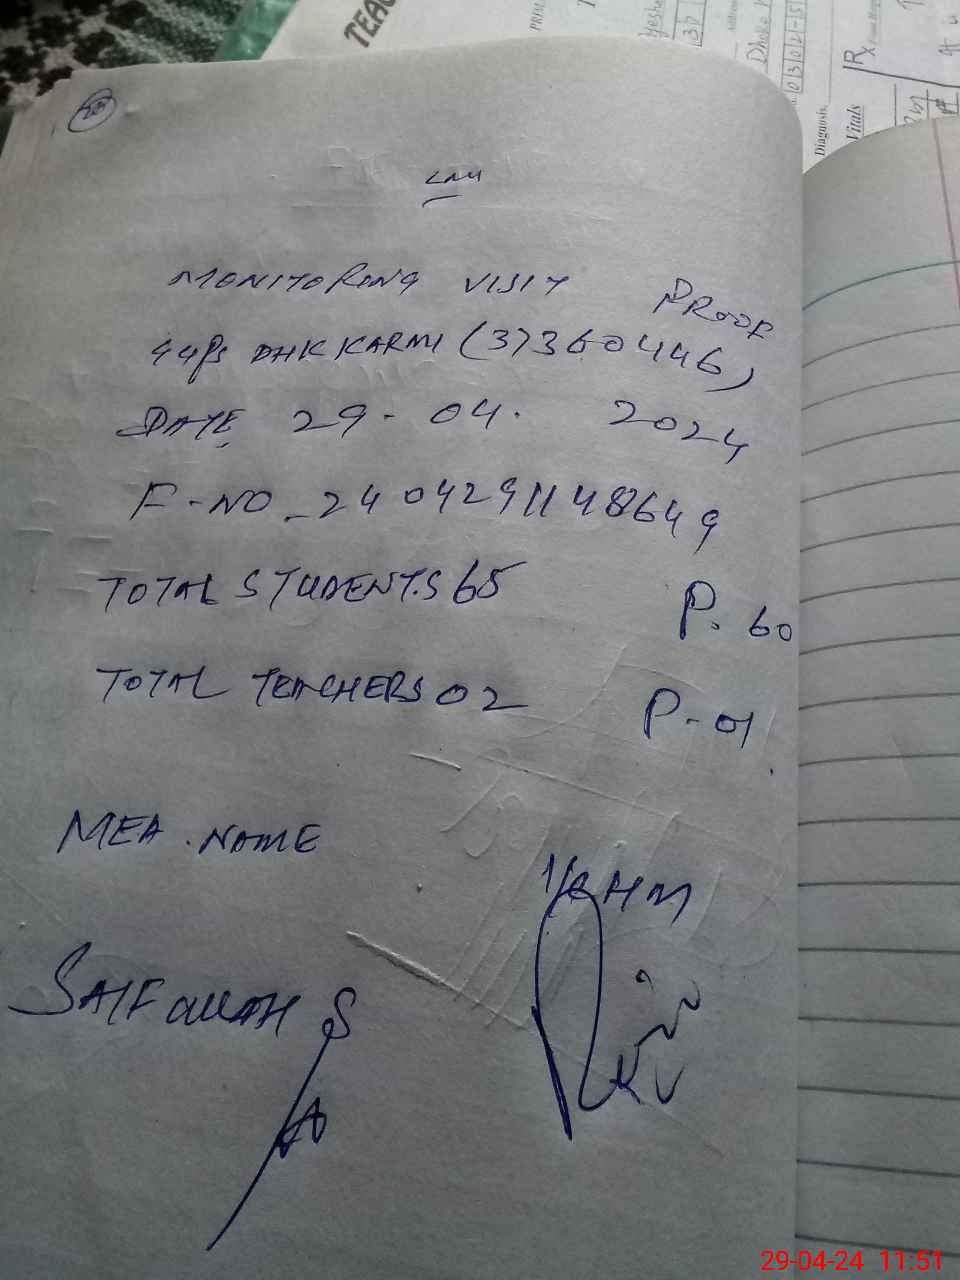 TEAC
Diagnosis.
Vitals
Rx
23
MONITORING VISIT PROOF
GGPS DHK KARMI (37360446)
DATE 29-04. 2024
F-NO-2404291148649
TOTAL STUDENTS 65 P. 60
TOTAL TEACHERS 02 P-01
MEA. NAME
I/C HM
SAIFULLAH S
29-04-24 11:51